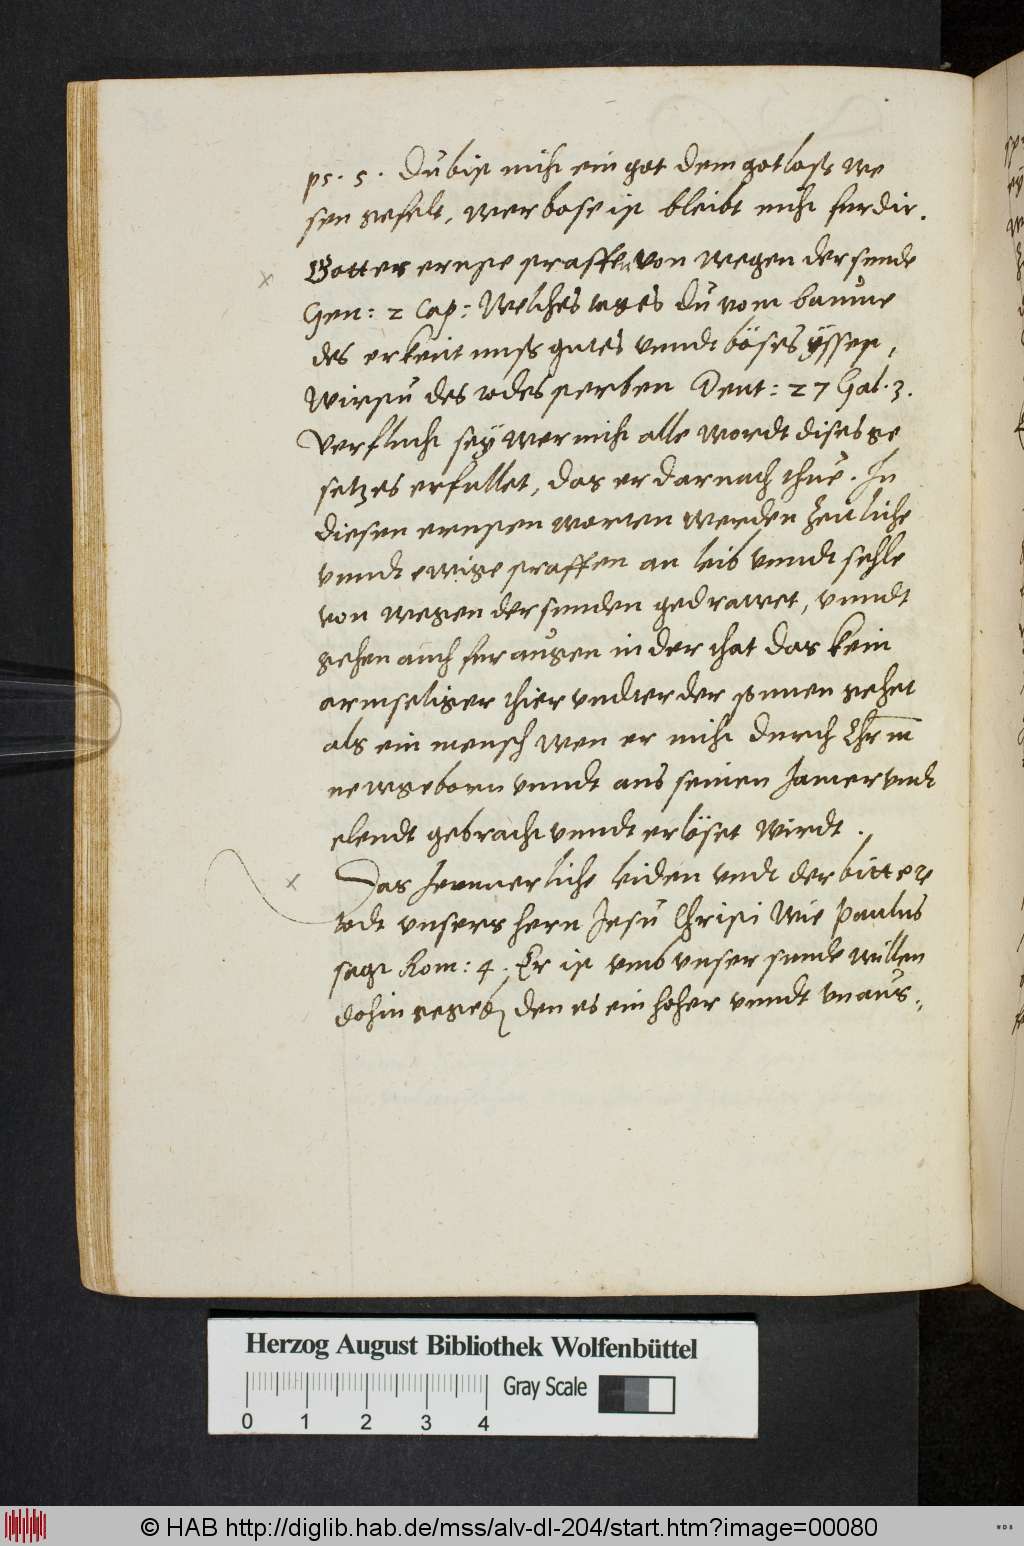 ps. 5. Du bist nicht ein got dem gotloß we
sen gefelt, wer bose ist bleibt nicht fur dir.
Gottes ernste straffen von wegen der sunde
Gen: 2 Cap: Welches tages du vom baume
des erkentnuß gutes unndt böses yssest,
wirstu des todes sterben Deut: 27 Gal. 3.
Verflucht sey wer nicht alle wordt dises ge
setzes erfullet, das er darnach thue. In
diesen ernsten worten werden zeitliche
unndt ewige straffen an leib unndt sehle
von wegen der sunden gedrawet, unndt
sehen auch fur augen in der that das kein
armseliger thier undter der sonnen gehet
als ein mensch wen er nicht durch Chrm
newgeborn unndt aus seinen Jamer undt
elendt gebracht unndt erlöset wirdt.
Das Jemmerliche leiden undt der bittere
todt unsers hern Jesu Christi Wie Paulus
sagt Rom: 4. Er ist umb unser sunde willen
dohin gegeb den es ein hoher unndt unaus,
Herzog August Bibliothek Wolfenbüttel
Gray Scale
0 1 2 3 4
© HAB http://diglib.hab.de/mss/alv-dl-204/start.htm?image=00080